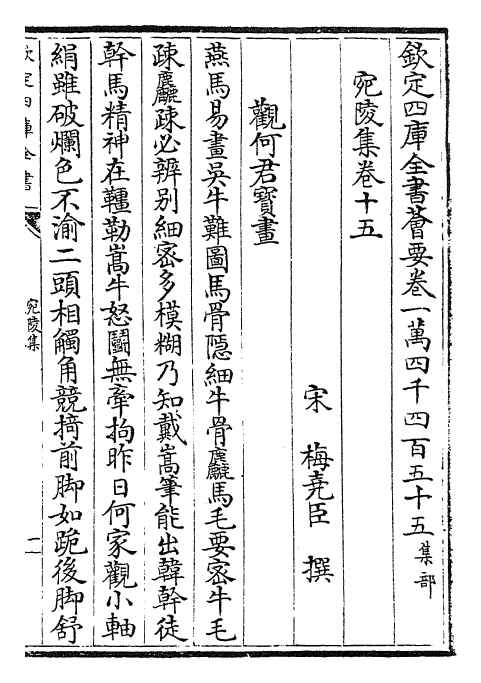 欽定四庫全書薈要卷一萬四千四百五十五集部
宛陵集卷十五
宋 梅堯臣 撰
觀何君寶畫
燕馬易畫吳牛難圖馬骨隱細牛骨麤馬毛要密牛毛
疎麤疎必辨别細密多模糊乃知戴嵩筆能出韓幹徒
幹馬精神在韁勒嵩牛怒鬭無牽拘昨日何家觀小軸
絹雖破爛色不渝二頭相觸角競掎前脚如跪後脚舒
欽定四庫全書
宛陵集
一